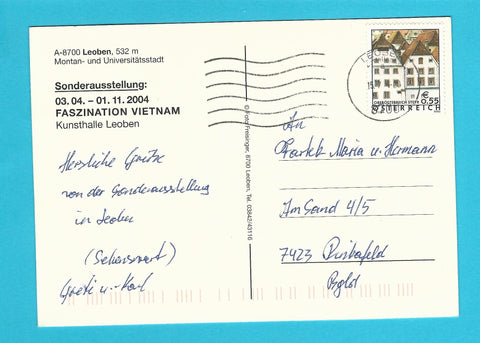 A-8700 Leoben, 532 m
Montan- und Universitätsstadt
Sonderausstellung:
03. 04. – 01. 11. 2004
FASZINATION VIETNAM
Kunsthalle Leoben
Herzliche Grüße
von der Sonderausstellung
in Leoben
(Sehenswert)
Greti u. Karl
© Foto Freisinger, 8700 Leoben, Tel. 03842/43116
€ 0,55
ÖSTERREICH
8700
An
Maria u. Hermann
Im Sand 4/5
7423 Pinkafeld
Bgld